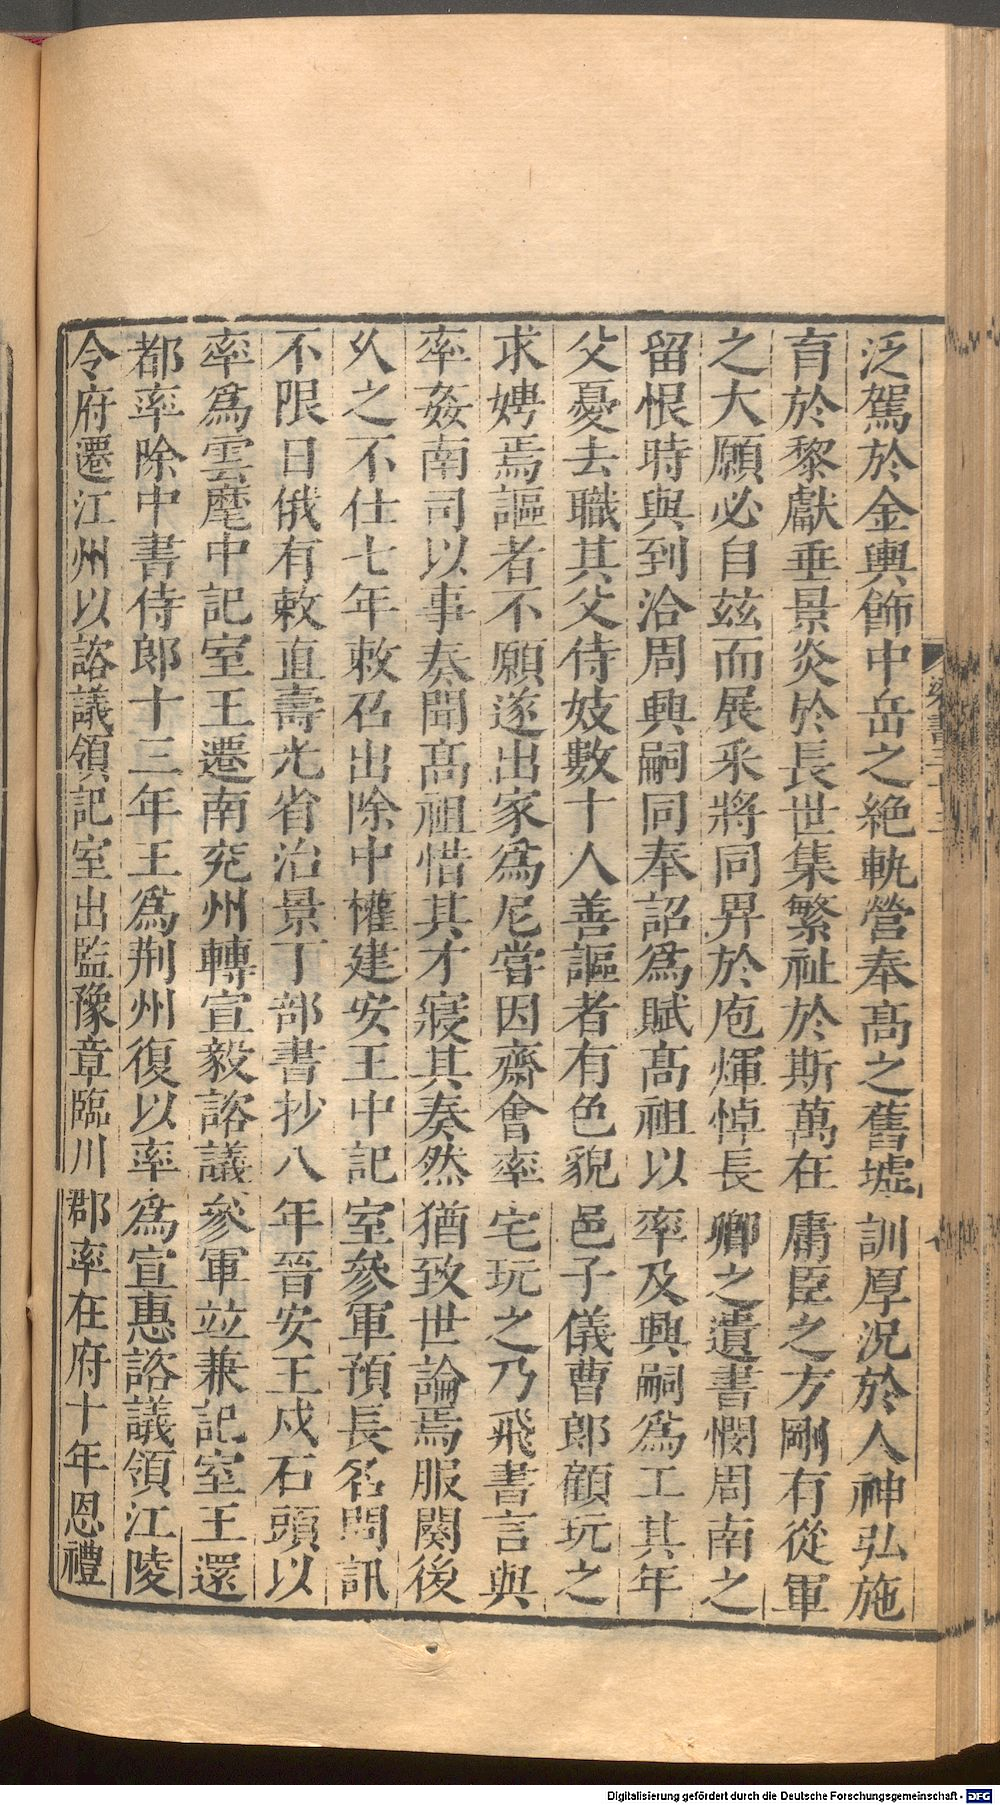 泛駕於金輿飾中岳之絶軌營奉高之舊墟訓厚況於人神弘施
育於黎獻垂景炎於長世集繁祉於斯萬在庸臣之方剛有從軍
之大願必自茲而展采將同畀於庖煇悼長卿之遺書憫周南之
留恨時與到洽周興嗣同奉詔爲賦高祖以率及興嗣爲工其年
父憂去職其父侍妓數十人善謳者有色貌邑子儀曹郎顧玩之
求娉焉謳者不願遂出家爲尼嘗因齋會率宅玩之乃飛書言與
率姦南司以事奏聞高祖惜其才寢其奏然猶致世論焉服闋後
乆之不仕七年敕召出除中權建安王中記室參軍預長名問訊
不限日俄有敕直壽光省治景丁部書抄八年晉安王戍石頭以
率爲雲麾中記室王遷南兖州轉宣毅諮議參軍竝兼記室王還
都率除中書侍郎十三年王爲荆州復以率爲宣惠諮議領江陵
令府遷江州以諮議領記室出監豫章臨川郡率在府十年恩禮
Digitalisierung gefördert durch die Deutsche Forschungsgemeinschaft - DFG